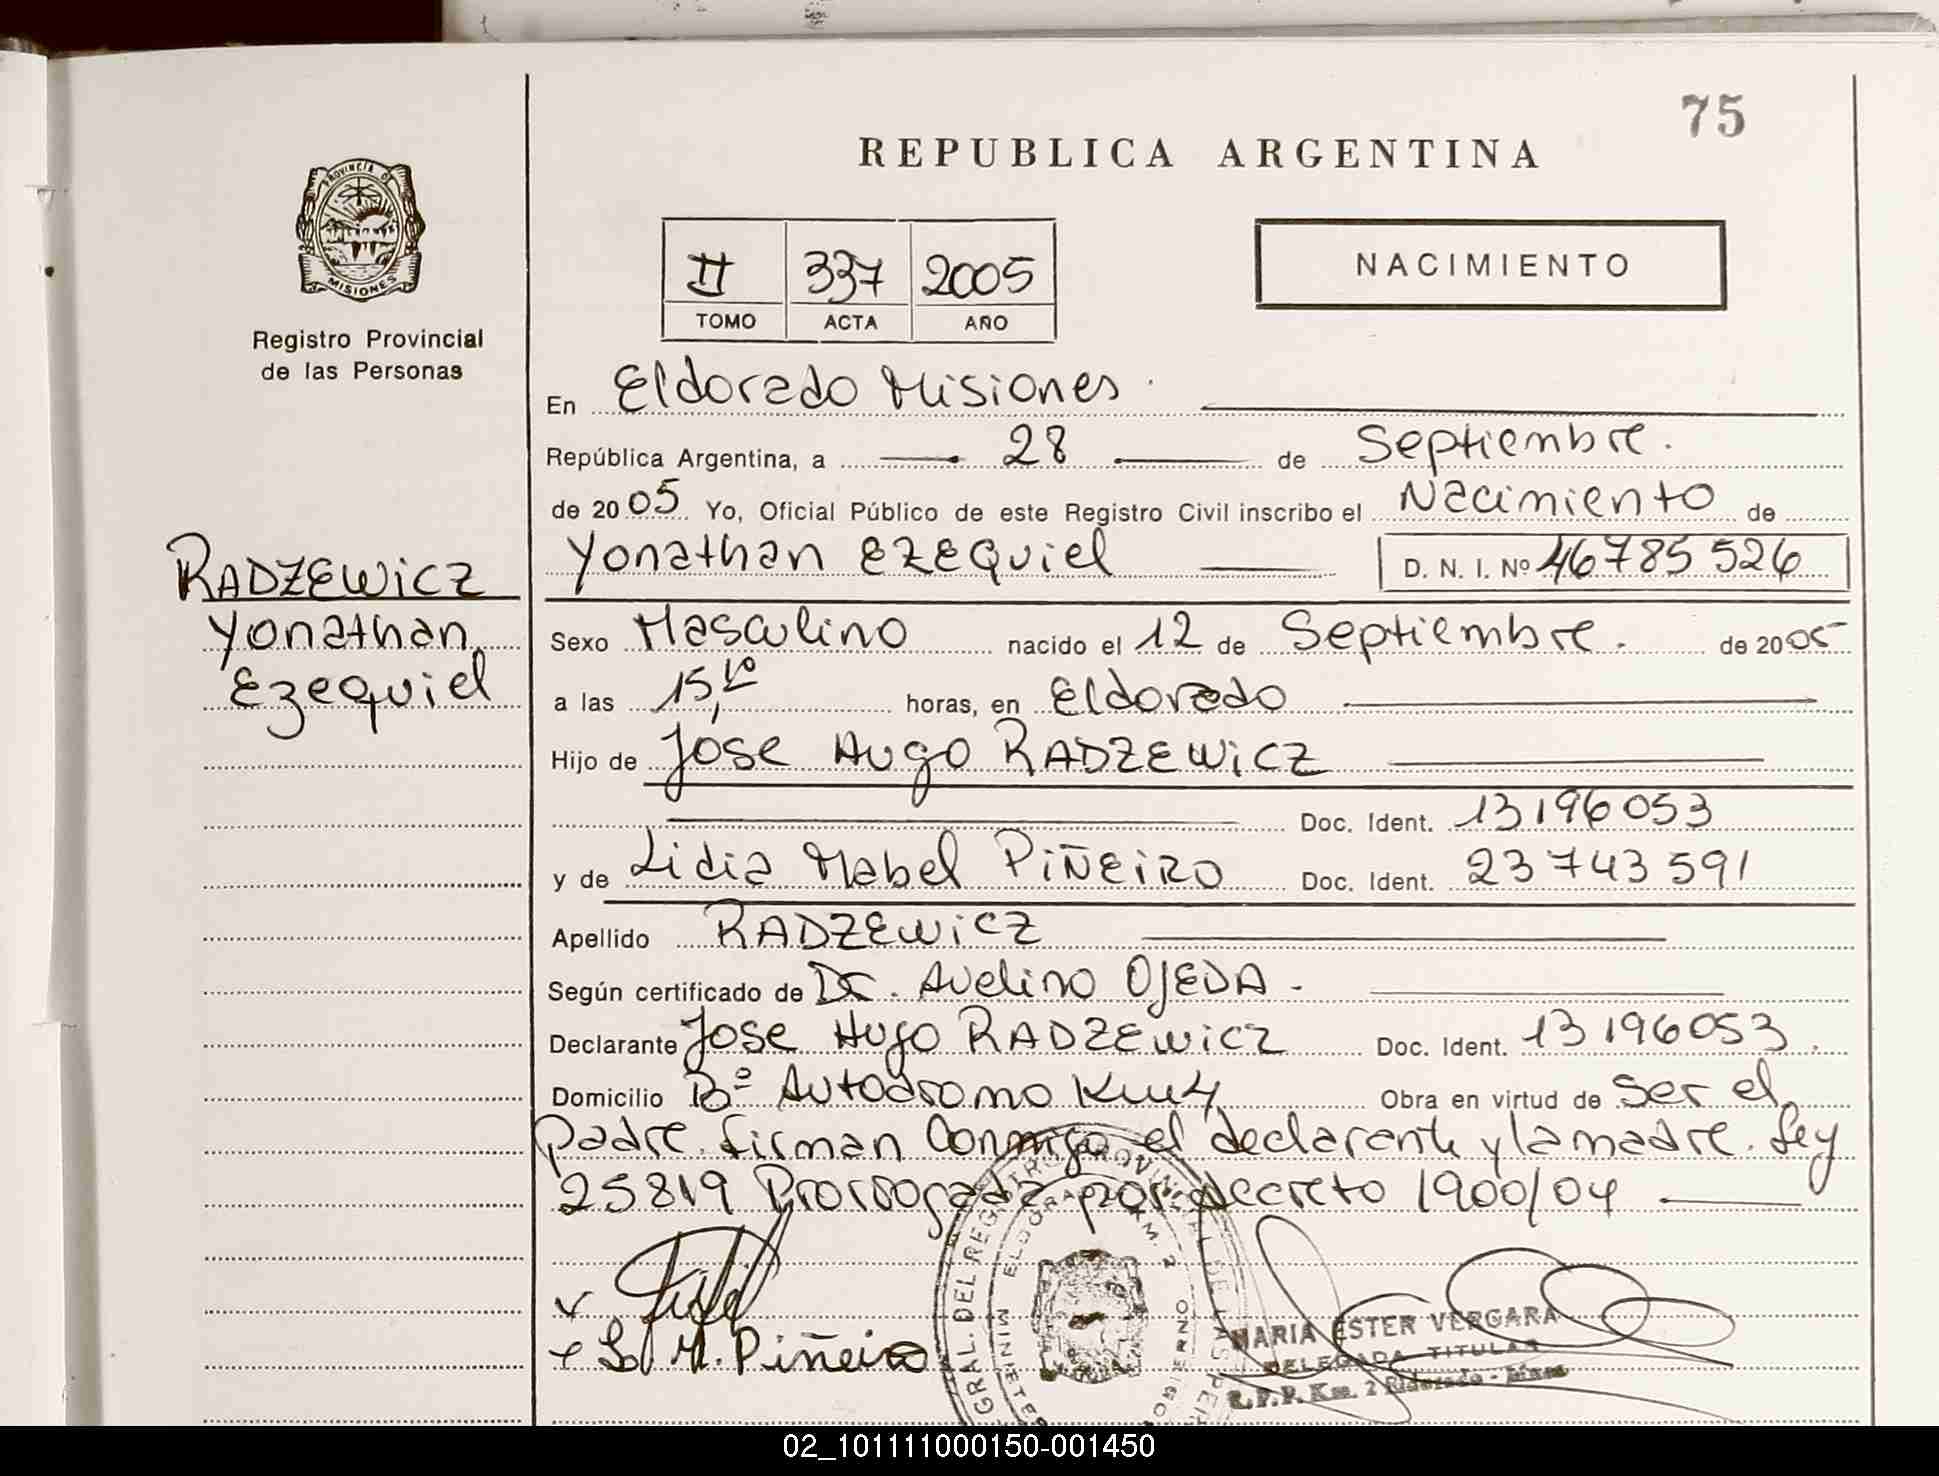 75
REPUBLICA ARGENTINA
PROVINCIA DE
MISIONES
Registro Provincial
de las Personas
II 337 2005
TOMO ACTA AÑO
NACIMIENTO
En Eldorado Misiones.
República Argentina, a 28 de Septiembre.
de 2005 Yo, Oficial Público de este Registro Civil inscribo el Nacimiento de
RADZEWICZ
Yonathan
Ezequiel
Yonathan EZEQUIEL D. N. I. Nº 46785526
Sexo Masculino nacido el 12 de Septiembre. de 2005
a las 15,10 horas, en Eldorado
Hijo de Jose Hugo RADZEWICZ
Doc. Ident. 13196053
y de Lidia Mabel PIÑEIRO Doc. Ident. 23743591
Apellido RADZEWICZ
Según certificado de Dr. Avelino OJEDA -
Declarante Jose Hugo RADZEWICZ Doc. Ident. 13196053.
Domicilio Bº Autodromo Km4 Obra en virtud de ser el
padre. firman conmigo el declarante y la madre. Ley
25819 Prorrogada por decreto 1900/04
L. M. Piñeiro
GRAL. DEL REGISTRO PROVINCIAL DE LAS PER
ELDORADO KM. 2
MARIA ESTER VERGARA
DELEGADA TITULAR
R.P.P. Km. 2 Eldorado - Mnes
02_101111000150-001450